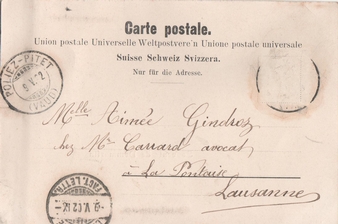 Carte postale.
Union postale Universelle Weltpostverein Unione postale universale
Suisse Schweiz Svizzera.
Nur für die Adresse.
POLIEZ-PITTET
(VAUD)
Melle Aimée Gindroz
chez Mr Carrard avocat
à La Pontaise
Lausanne
FACT. LETTR.